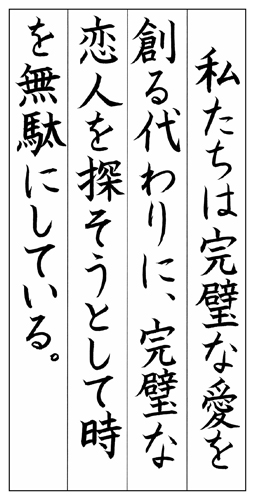 私たちは完璧な愛を
創る代わりに、完璧な
恋人を探そうとして時
を無駄にしている。